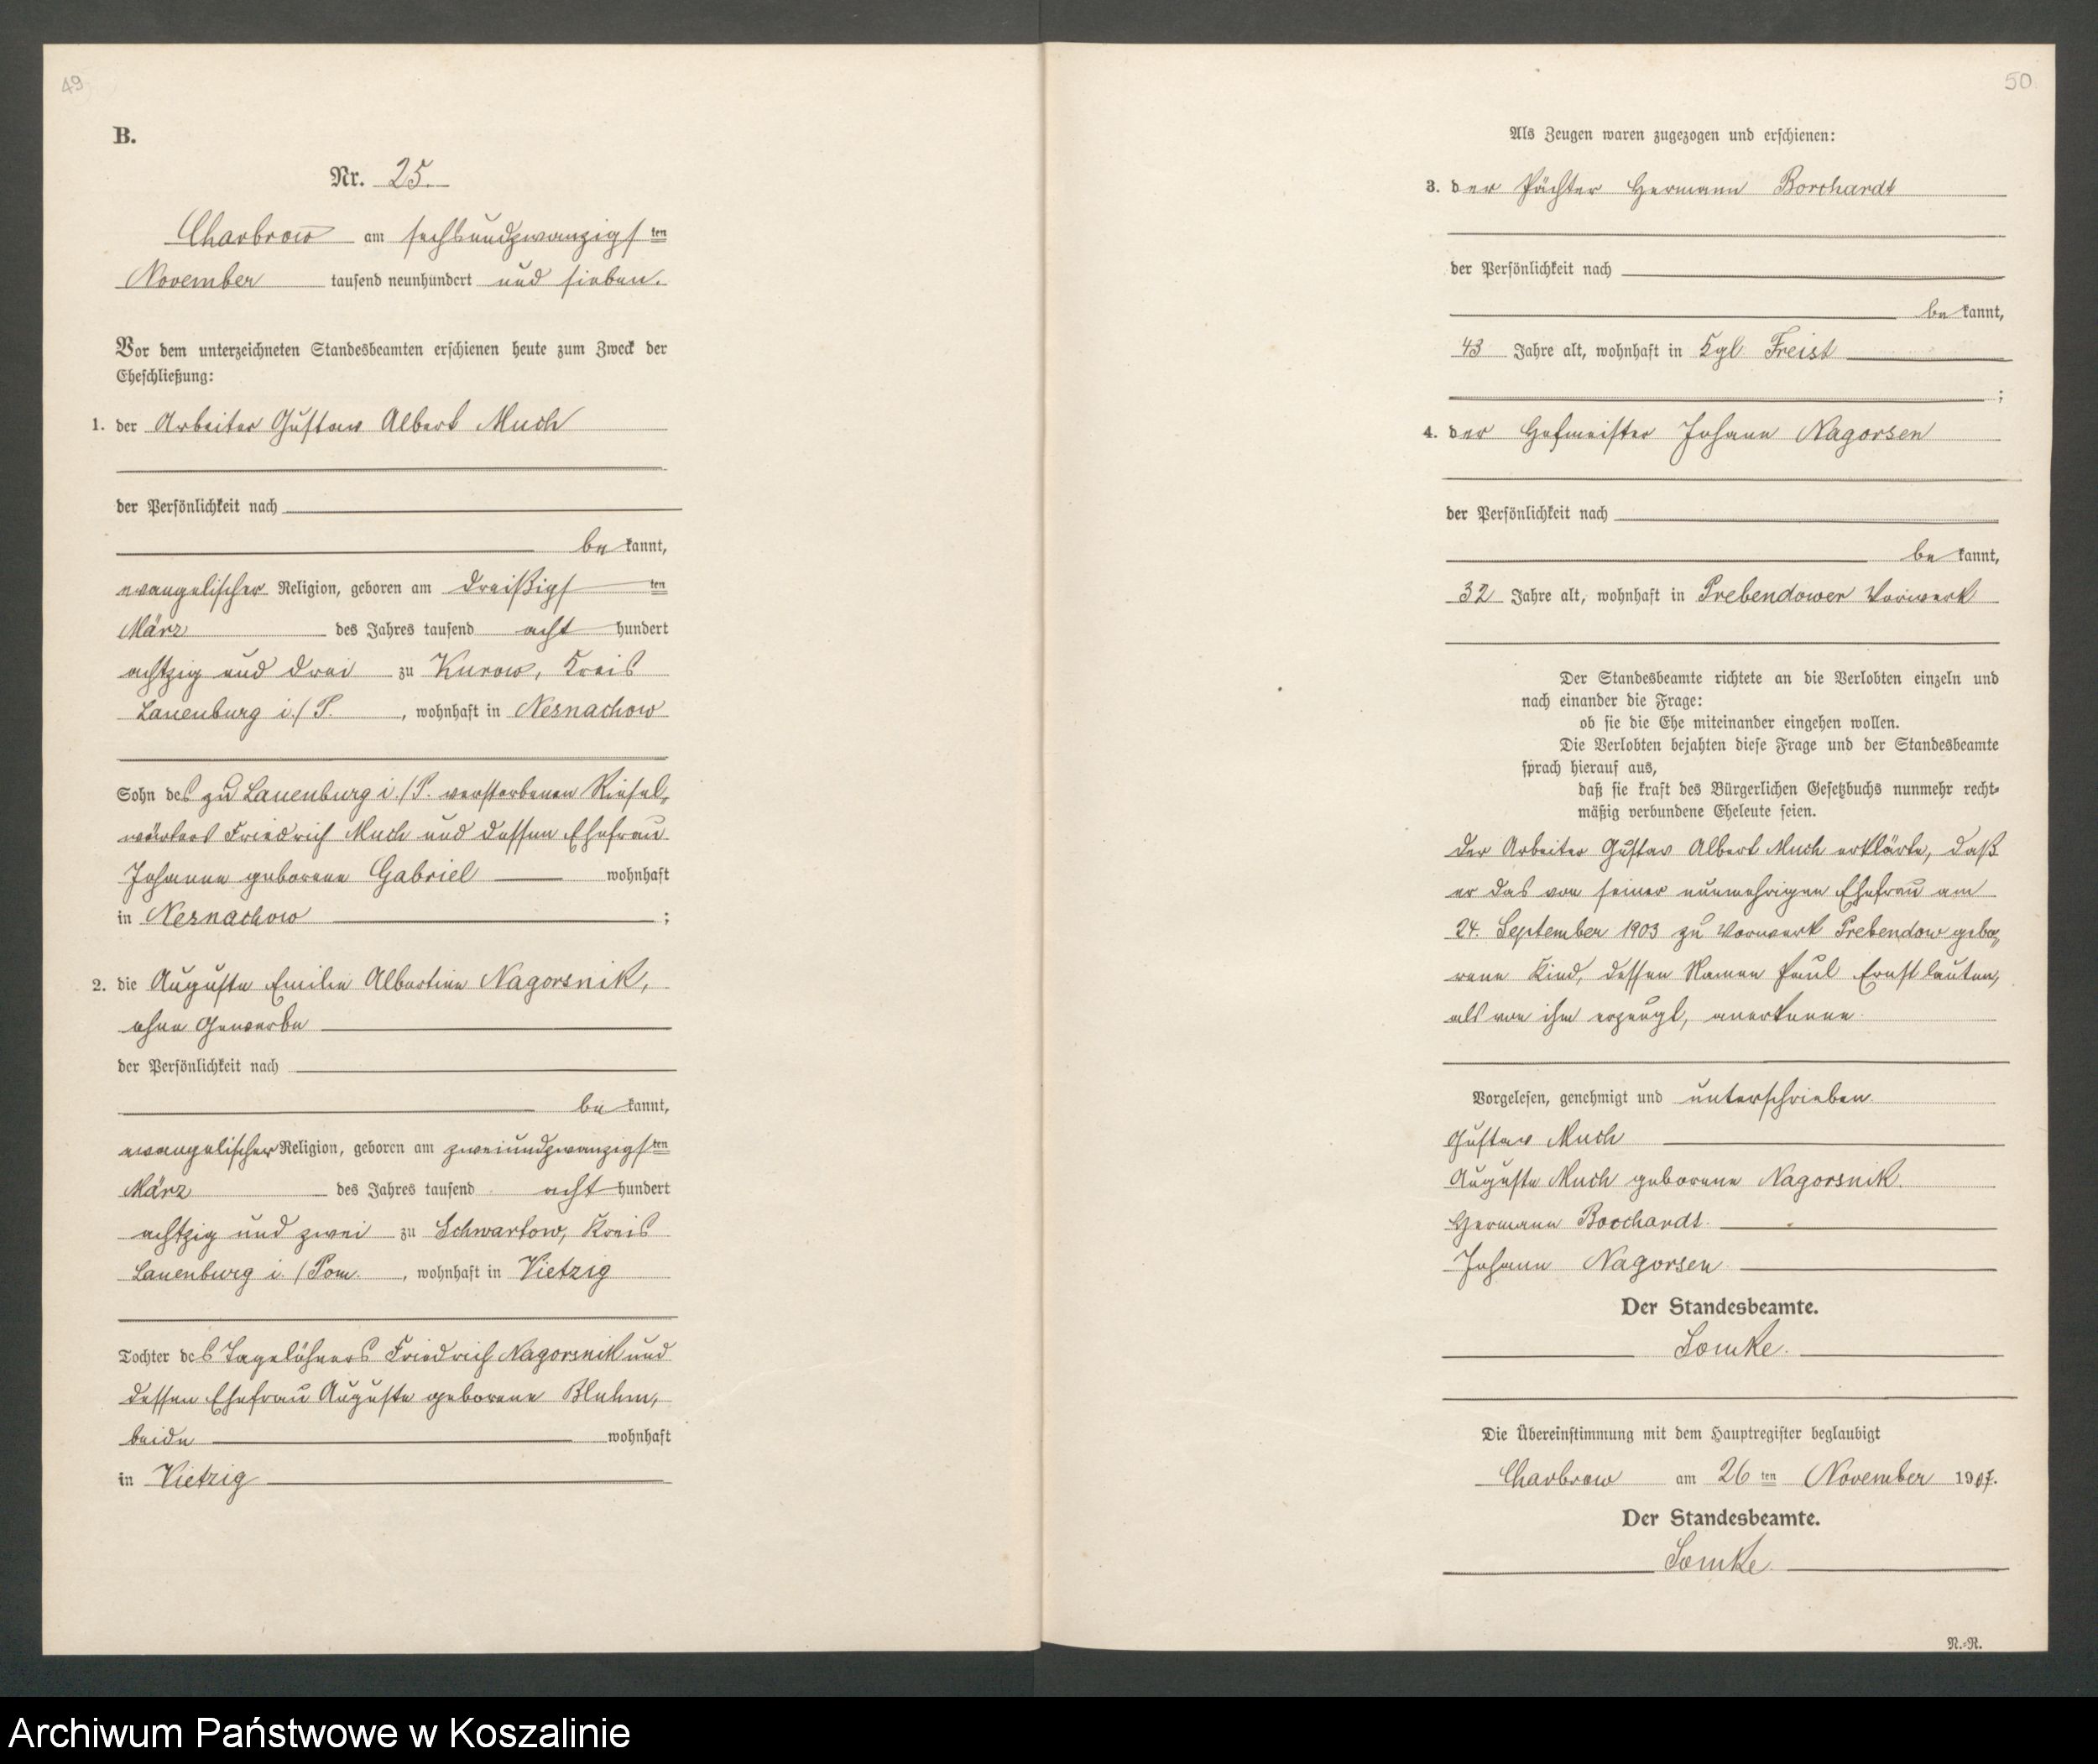 49
B.
Nr. 25.
Charbrow am sechsundzwanzigsten
November tausend neunhundert und sieben.
Vor dem unterzeichneten Standesbeamten erschienen heute zum Zweck der
Eheschließung:
1. der Arbeiter Gustav Albert Much
der Persönlichkeit nach
be kannt,
evangelischer Religion, geboren am dreißigsten
März des Jahres tausend acht hundert
achtzig und drei zu Kurow, Kreis
Lauenburg i./P., wohnhaft in Nesnachow
Sohn des zu Lauenburg i./P. verstorbenen Riesel-
wärters Friedrich Much und dessen Ehefrau
Johanne geborene Gabriel wohnhaft
in Nesnachow ;
2. die Auguste Emilie Albertine Nagorsnik,
ohne Gewerbe
der Persönlichkeit nach
be kannt,
evangelischer Religion, geboren am zweiundzwanzigsten
März des Jahres tausend acht hundert
achtzig und zwei zu Schwartow, Kreis
Lauenburg i./Pom., wohnhaft in Vietzig
Tochter des Tagelöhners Friedrich Nagorsnik und
dessen Ehefrau Auguste geborene Bluhm,
beide wohnhaft
in Vietzig
50
Als Zeugen waren zugezogen und erschienen:
3. der Pächter Hermann Borchardt
der Persönlichkeit nach
be kannt,
43 Jahre alt, wohnhaft in Kgl. Freist
;
4. der Hofmeister Johann Nagorsen
der Persönlichkeit nach
be kannt,
32 Jahre alt, wohnhaft in Prebendower Vorwerk
Der Standesbeamte richtete an die Verlobten einzeln und
nach einander die Frage:
ob sie die Ehe miteinander eingehen wollen.
Die Verlobten bejahten diese Frage und der Standesbeamte
sprach hierauf aus,
daß sie kraft des Bürgerlichen Gesetzbuchs nunmehr recht-
mäßig verbundene Eheleute seien.
Der Arbeiter Gustav Albert Much erklärte, daß
er das von seiner nunmehrigen Ehefrau am
24. September 1903 zu Vorwerk Prebendow gebo-
rene Kind, dessen Namen Paul Ernst lauten,
als von ihm erzeugt, anerkenne.
Vorgelesen, genehmigt und unterschrieben
Gustav Much
Auguste Much geborene Nagorsnik.
Hermann Borchardt.
Johann Nagorsen
Der Standesbeamte.
Lomke.
Die Übereinstimmung mit dem Hauptregister beglaubigt
Charbrow am 26ten November 1907.
Der Standesbeamte.
Lomke.
N.-R.
Archiwum Państwowe w Koszalinie